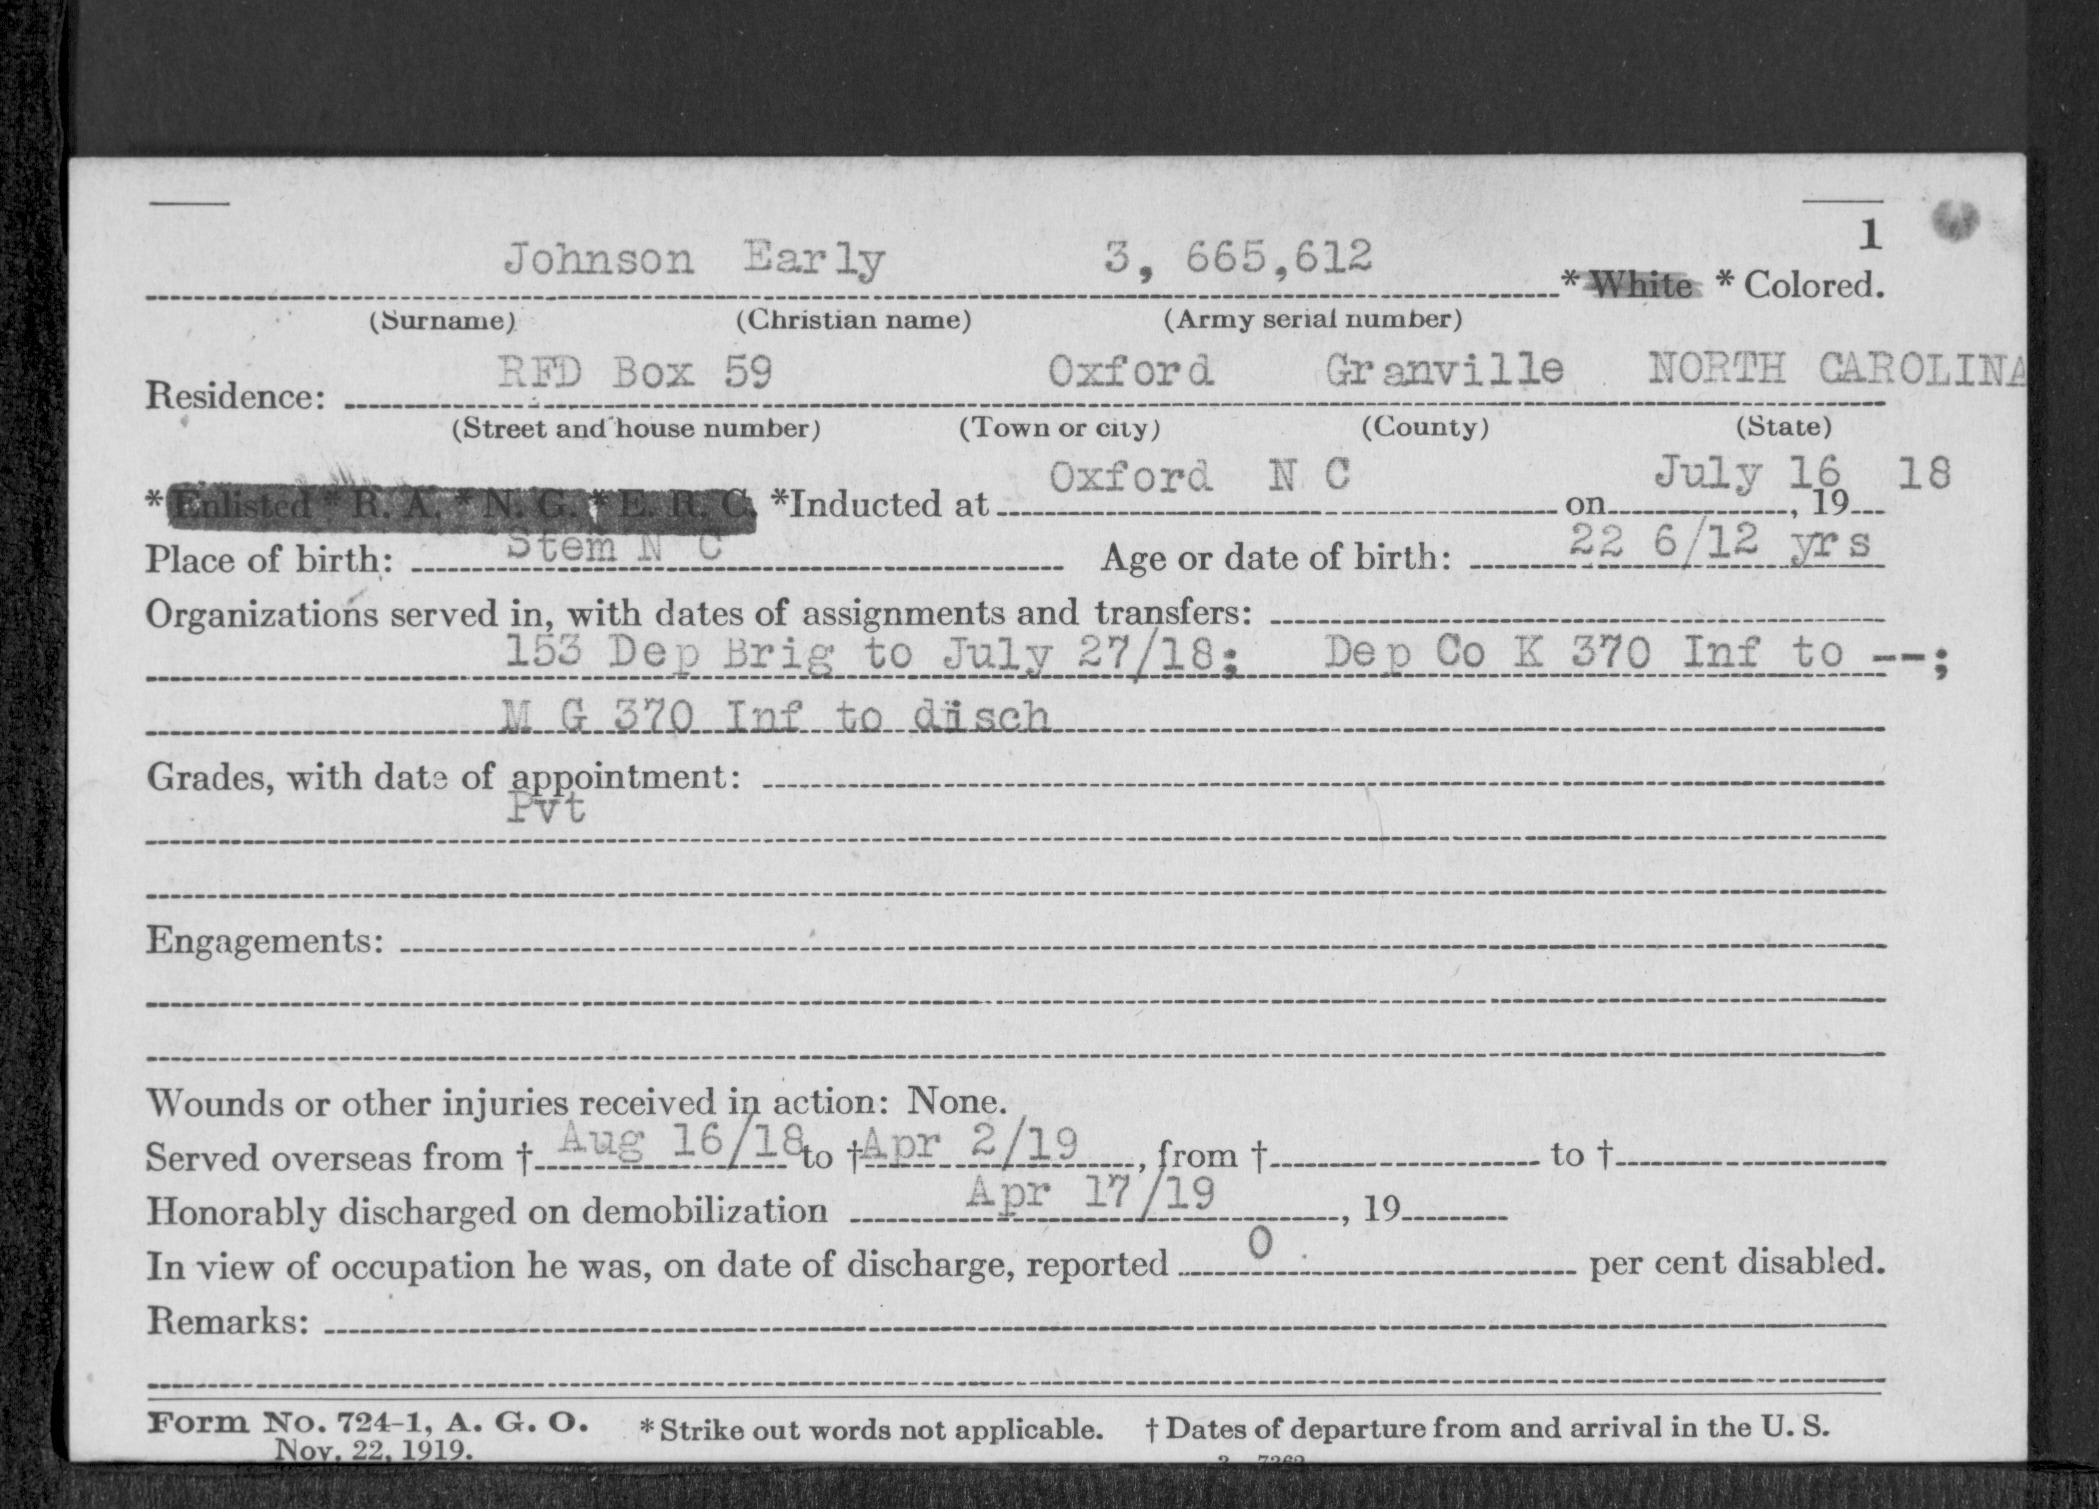 1
Johnson Early 3, 665,612 * White * Colored.
(Surname) (Christian name) (Army serial number)
Residence: RFD Box 59 Oxford Granville NORTH CAROLINA
(Street and house number) (Town or city) (County) (State)
* Enlisted * R. A. * N. G. * E. R. C. *Inducted at Oxford N C on July 16, 19 18
Place of birth: Stem N C Age or date of birth: 22 6/12 yrs
Organizations served in, with dates of assignments and transfers:
153 Dep Brig to July 27/18; Dep Co K 370 Inf to --;
M G 370 Inf to disch
Grades, with date of appointment:
Pvt
Engagements:
Wounds or other injuries received in action: None.
Served overseas from † Aug 16/18 to † Apr 2/19, from † to †
Honorably discharged on demobilization Apr 17/19, 19
In view of occupation he was, on date of discharge, reported 0 per cent disabled.
Remarks:
Form No. 724-1, A. G. O. * Strike out words not applicable. † Dates of departure from and arrival in the U. S.
Nov. 22, 1919.